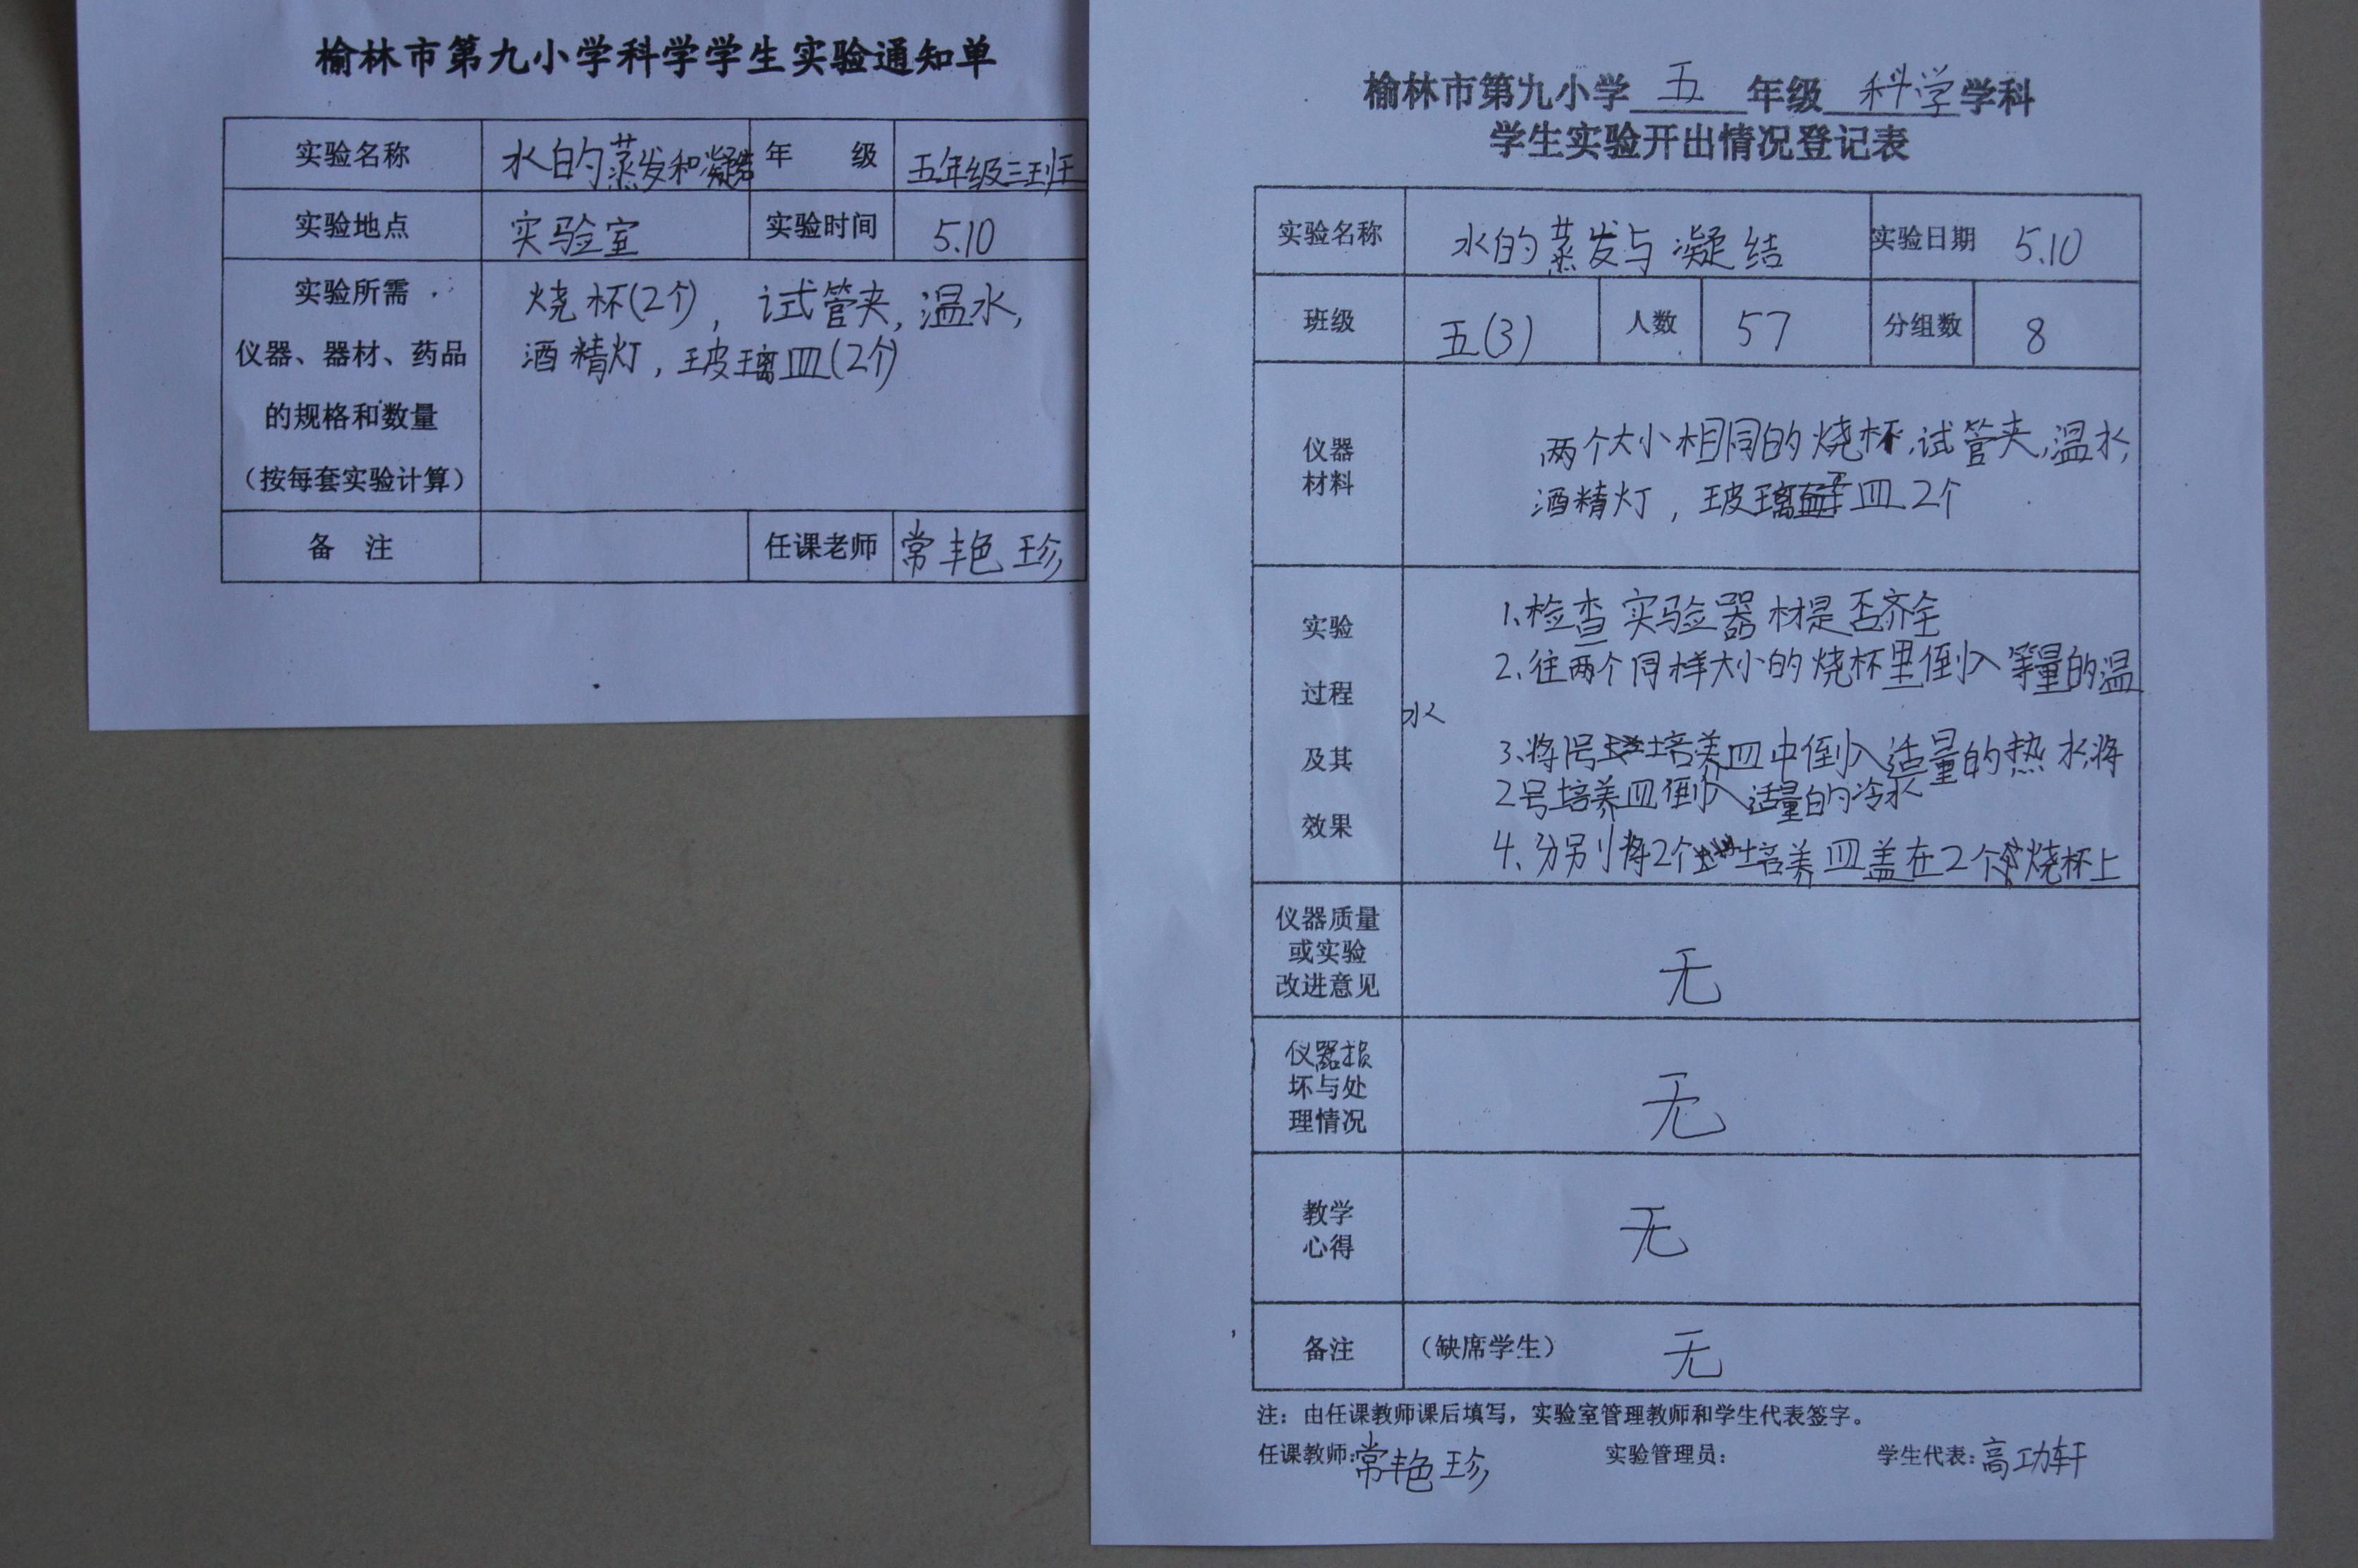 榆林市第九小学科学学生实验通知单
实验名称 水的蒸发和凝结 年 级 五年级三班
实验地点 实验室 实验时间 5.10
实验所需
仪器、器材、药品
的规格和数量
（按每套实验计算）
烧杯(2个)，试管夹,温水,
酒精灯，玻璃皿(2个)
备 注 任课老师 常艳珍
榆林市第九小学 五 年级 科学 学科
学生实验开出情况登记表
实验名称 水的蒸发与凝结 实验日期 5.10
班级 五(3) 人数 57 分组数 8
仪器
材料
两个大小相同的烧杯,试管夹,温水,
酒精灯，玻璃皿2个
实验
过程
及其
效果
1、检查实验器材是否齐全
2、往两个同样大小的烧杯里倒入等量的温
水
3、将1号培养皿中倒入适量的热水,将
2号培养皿倒入适量的冷水
4、分别将2个培养皿盖在2个烧杯上
仪器质量
或实验
改进意见
无
仪器损
坏与处
理情况
无
教学
心得
无
备注 （缺席学生） 无
注：由任课教师课后填写，实验室管理教师和学生代表签字。
任课教师:常艳珍 实验管理员： 学生代表:高功轩